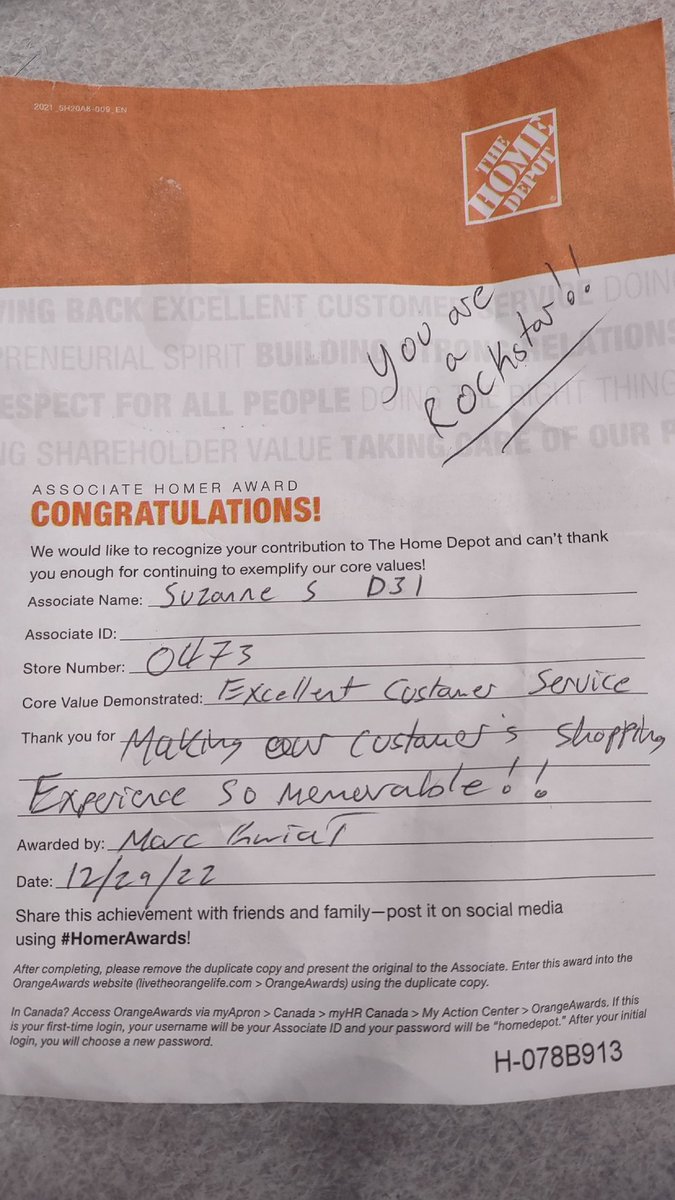 2021_SH20A8-009_EN
THE
HOME
DEPOT
You are
a
Rockstar!!
VING BACK EXCELLENT CUSTOMER SERVICE DOING
PRENEURIAL SPIRIT BUILDING STRONG RELATIONS
ESPECT FOR ALL PEOPLE DOING THE RIGHT THING
NG SHAREHOLDER VALUE TAKING CARE OF OUR P
ASSOCIATE HOMER AWARD
CONGRATULATIONS!
We would like to recognize your contribution to The Home Depot and can't thank
you enough for continuing to exemplify our core values!
Associate Name: Suzanne S D31
Associate ID:
Store Number: 0473
Core Value Demonstrated: Excellent Customer Service
Thank you for Making our Customer's Shopping
Experience so memorable!!
Awarded by: Marc
Date: 12/29/22
Share this achievement with friends and family—post it on social media
using #HomerAwards!
After completing, please remove the duplicate copy and present the original to the Associate. Enter this award into the
OrangeAwards website (livetheorangelife.com > OrangeAwards) using the duplicate copy.
In Canada? Access OrangeAwards via myApron > Canada > myHR Canada > My Action Center > OrangeAwards. If this
is your first-time login, your username will be your Associate ID and your password will be "homedepot." After your initial
login, you will choose a new password.
H-078B913